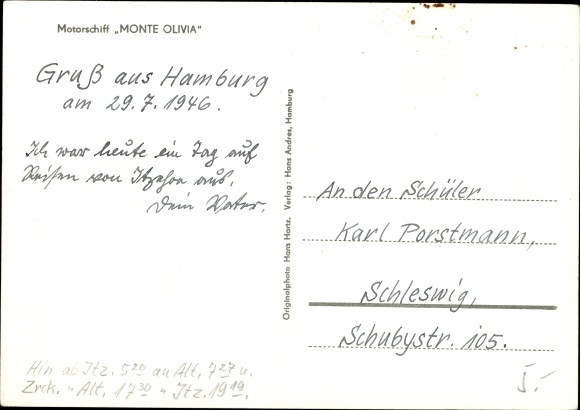 Motorschiff „MONTE OLIVIA“
Gruß aus Hamburg
am 29.7.1946.
Ich war heute ein Tag auf
Reisen von Itzehoe aus.
Dein Vater.
Hin ab Itz. 5²⁰ an Alt. 7²⁷ u.
Zrck. " Alt. 17³⁰ " Itz. 19¹⁹.
Originalphoto Hans Hartz. Verlag: Hans Andres, Hamburg
An den Schüler
Karl Porstmann,
Schleswig,
Schubystr. 105.
5.-